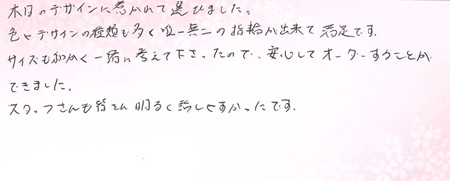 木目のデザインに惹かれて選びました。
色とデザインの種類も多く唯一無二の指輪が出来て満足です。
サイズも細かく一緒に考えて下さったので、安心してオーダーすることが
できました。
スタッフさんも皆さん明るく話しやすかったです。